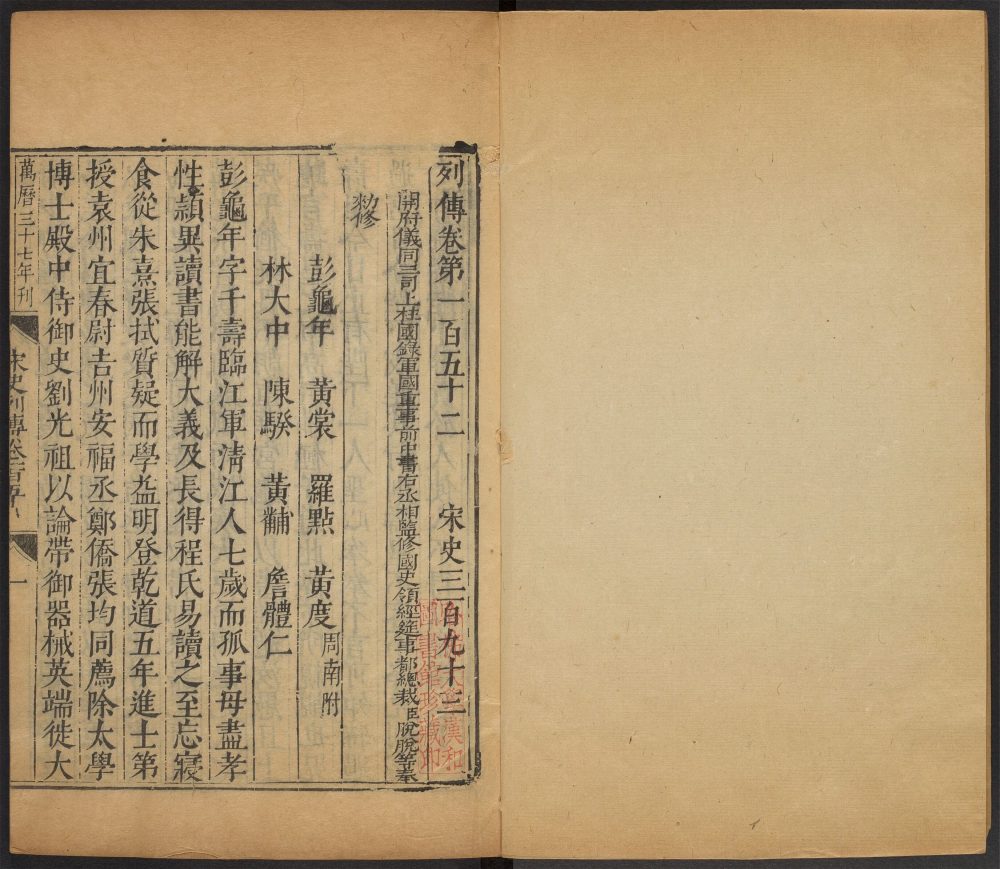 列傳卷第一百五十二 宋史三百九十三
開府儀同三司上柱國錄軍國重事前中書右丞相監修國史領經筵事都總裁臣脫脫等奉
勑修
彭龜年 黃裳 羅點 黃度周南附
林大中 陳騤 黃黼 詹體仁
彭龜年字子壽臨江軍清江人七歲而孤事母盡孝
性穎異讀書能解大義及長得程氏易讀之至忘寢
食從朱熹張栻質疑而學益明登乾道五年進士第
授袁州宜春尉吉州安福丞鄭僑張均同薦除太學
博士殿中侍御史劉光祖以論帶御器械吳端徙太
萬曆三十七年刊
宋史列傳卷百五
一
漢和
圖書館珍藏印